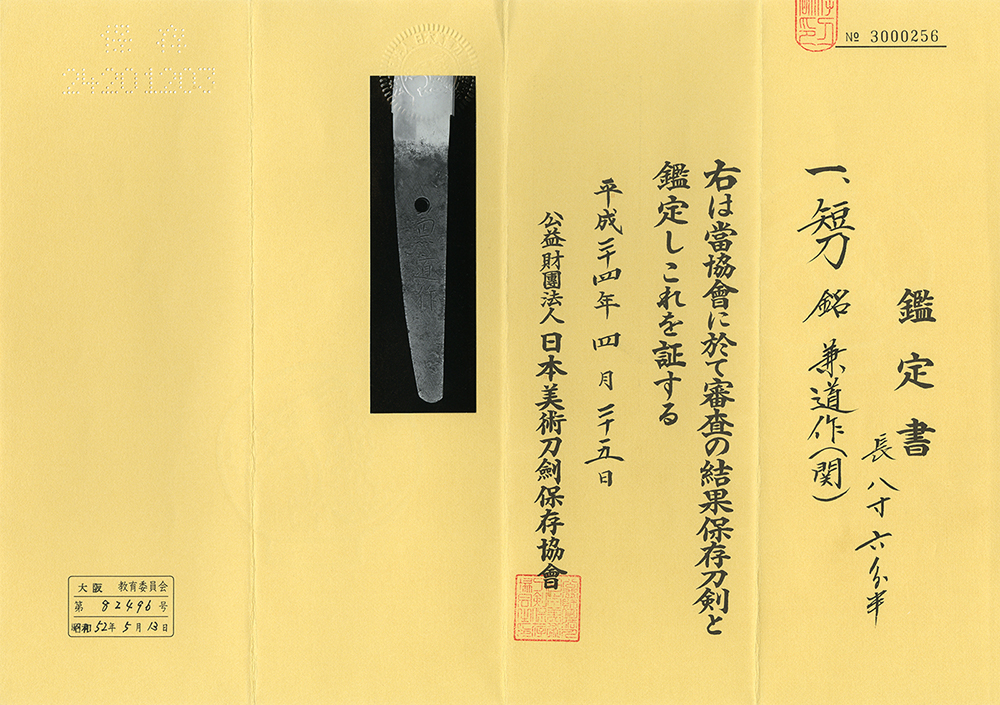 № 3000256
鑑定書
一、短刀 銘 兼道作（関）
長 八寸六分半
右は當協會に於て審査の結果保存刀剣と
鑑定しこれを証する
平成二十四年 四月 二十五日
公益財團法人 日本美術刀劍保存協會
保存
24201203
大阪 教育委員会
第 82496 号
昭和 52年 5月 13日